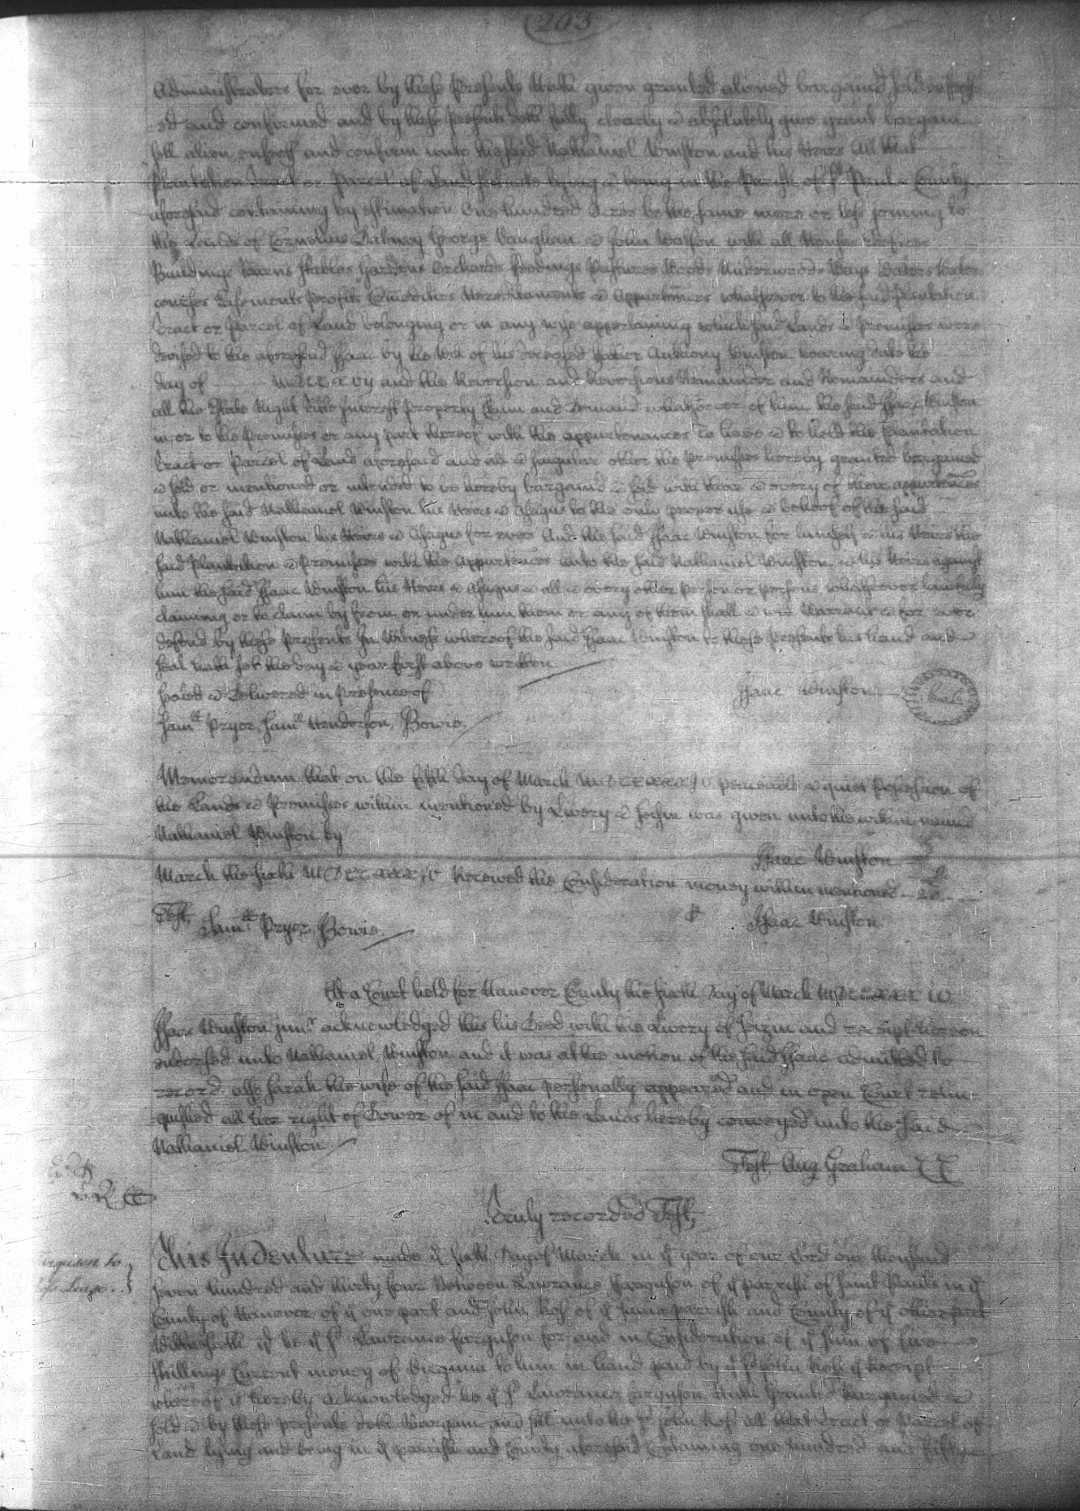 203
Administrators for ever by these Presents Hath given granted aliened bargained sold enfeoff
ed and confirmed and by these presents doth fully clearly & absolutely give grant bargain
sell alien enfeoff and confirm unto the said Nathaniel Winston and his Heirs All that
Plantation Tract or Parcel of Land Scituate lying & being in the Parish of St. Paul & County
aforesaid containing by estimation One hundred Acres be the same more or less joining to
the Lands of Cornelius Dabney George Vaughan & John Watson with all Houses Edifices
Buildings Barns Stables Gardens Orchards Feedings Pastures Woods Underwoods Ways Waters Water
courses Easements Profits Comodities Hereditaments & Appurtences whatsoever to the said Plantation
Tract or Parcel of Land belonging or in any wise appertaining which said Lands & Premises were
devised to the aforesaid Isaac by the Will of his deceased father Anthony Winston bearing date the
day of and the Reversion and Reversions Remainder and Remainders and
all the Estate Right Title Interest Property Claim and Demand whatsoever of him the said Isaac Winston
in or to the Premises or any part thereof with the appurtenances To have & to hold the Plantation
Tract or Parcel of Land aforesaid and all & singular other the Premises hereby granted bargained
& sold or mentioned or intended to be hereby bargained & sold with their & every of their appurtences
unto the said Nathaniel Winston his Heirs & Assigns to the only proper use & behoof of the said
Nathaniel Winston his Heirs & Assigns for ever And the said Isaac Winston for himself & his Heirs the
said Plantation & Premises with the Appurtences unto the said Nathaniel Winston & his Heirs against
him the said Isaac Winston his Heirs & Assigns & all & every other Person or Persons whatsoever lawfully
claiming or to claim by from or under him them or any of them shall & will Warrant & for ever
defend by these Presents In Witness whereof the said Isaac Winston to these Presents his hand and
seal hath set the day & year first above written
Sealed & Delivered in presence of
Isaac Winston seal
Saml Pryor, Saml Henderson, Bowie.
Memorandum that on the fifth day of March MDCCXXXIV peaceable & quiet possession of
the Lands & Premises within mentioned by Livery & Seizin was given unto the within named
Nathaniel Winston by
Isaac Winston
March the MDCCXXXIV Received the Consideration money within mentioned
Test Saml Pryor, Bowie. Isaac Winston
At a Court held for Hanover County the day of March MDCCXXXIV
Isaac Winston junr acknowledged this his Deed with the Livery of Seizin and receipt thereon
endorsed unto Nathaniel Winston and it was at the motion of the said Isaac admitted to
record, also Sarah the wife of the said Isaac personally appeared and in open Court relin
quished all her right of Dower of in and to the Lands hereby conveyed unto the said
Nathaniel Winston
Test Aug Graham
Truly recorded Test,
This Indenture made ye day of March in ye year of our Lord one thousand
seven hundred and thirty four Between Lawrance Farguson of ye parrish of Saint Pauls in ye
County of Hanover of ye one part and John Ross of ye same parrish and County of ye other part
Witnesseth yt he ye sd Lawrance Farguson for and in Consideration of ye sum of five
shillings Current money of Virginia to him in hand paid by ye sd John Ross ye Receipt
whereof is hereby acknowledged he ye sd Lawrance Farguson hath Granted Bargained &
sold & by these presents doth Bargain and sell unto the sd John Ross all that Tract or Parcel of
Land lying and being in ye parrish and County aforesaid Containing one hundred and fifty